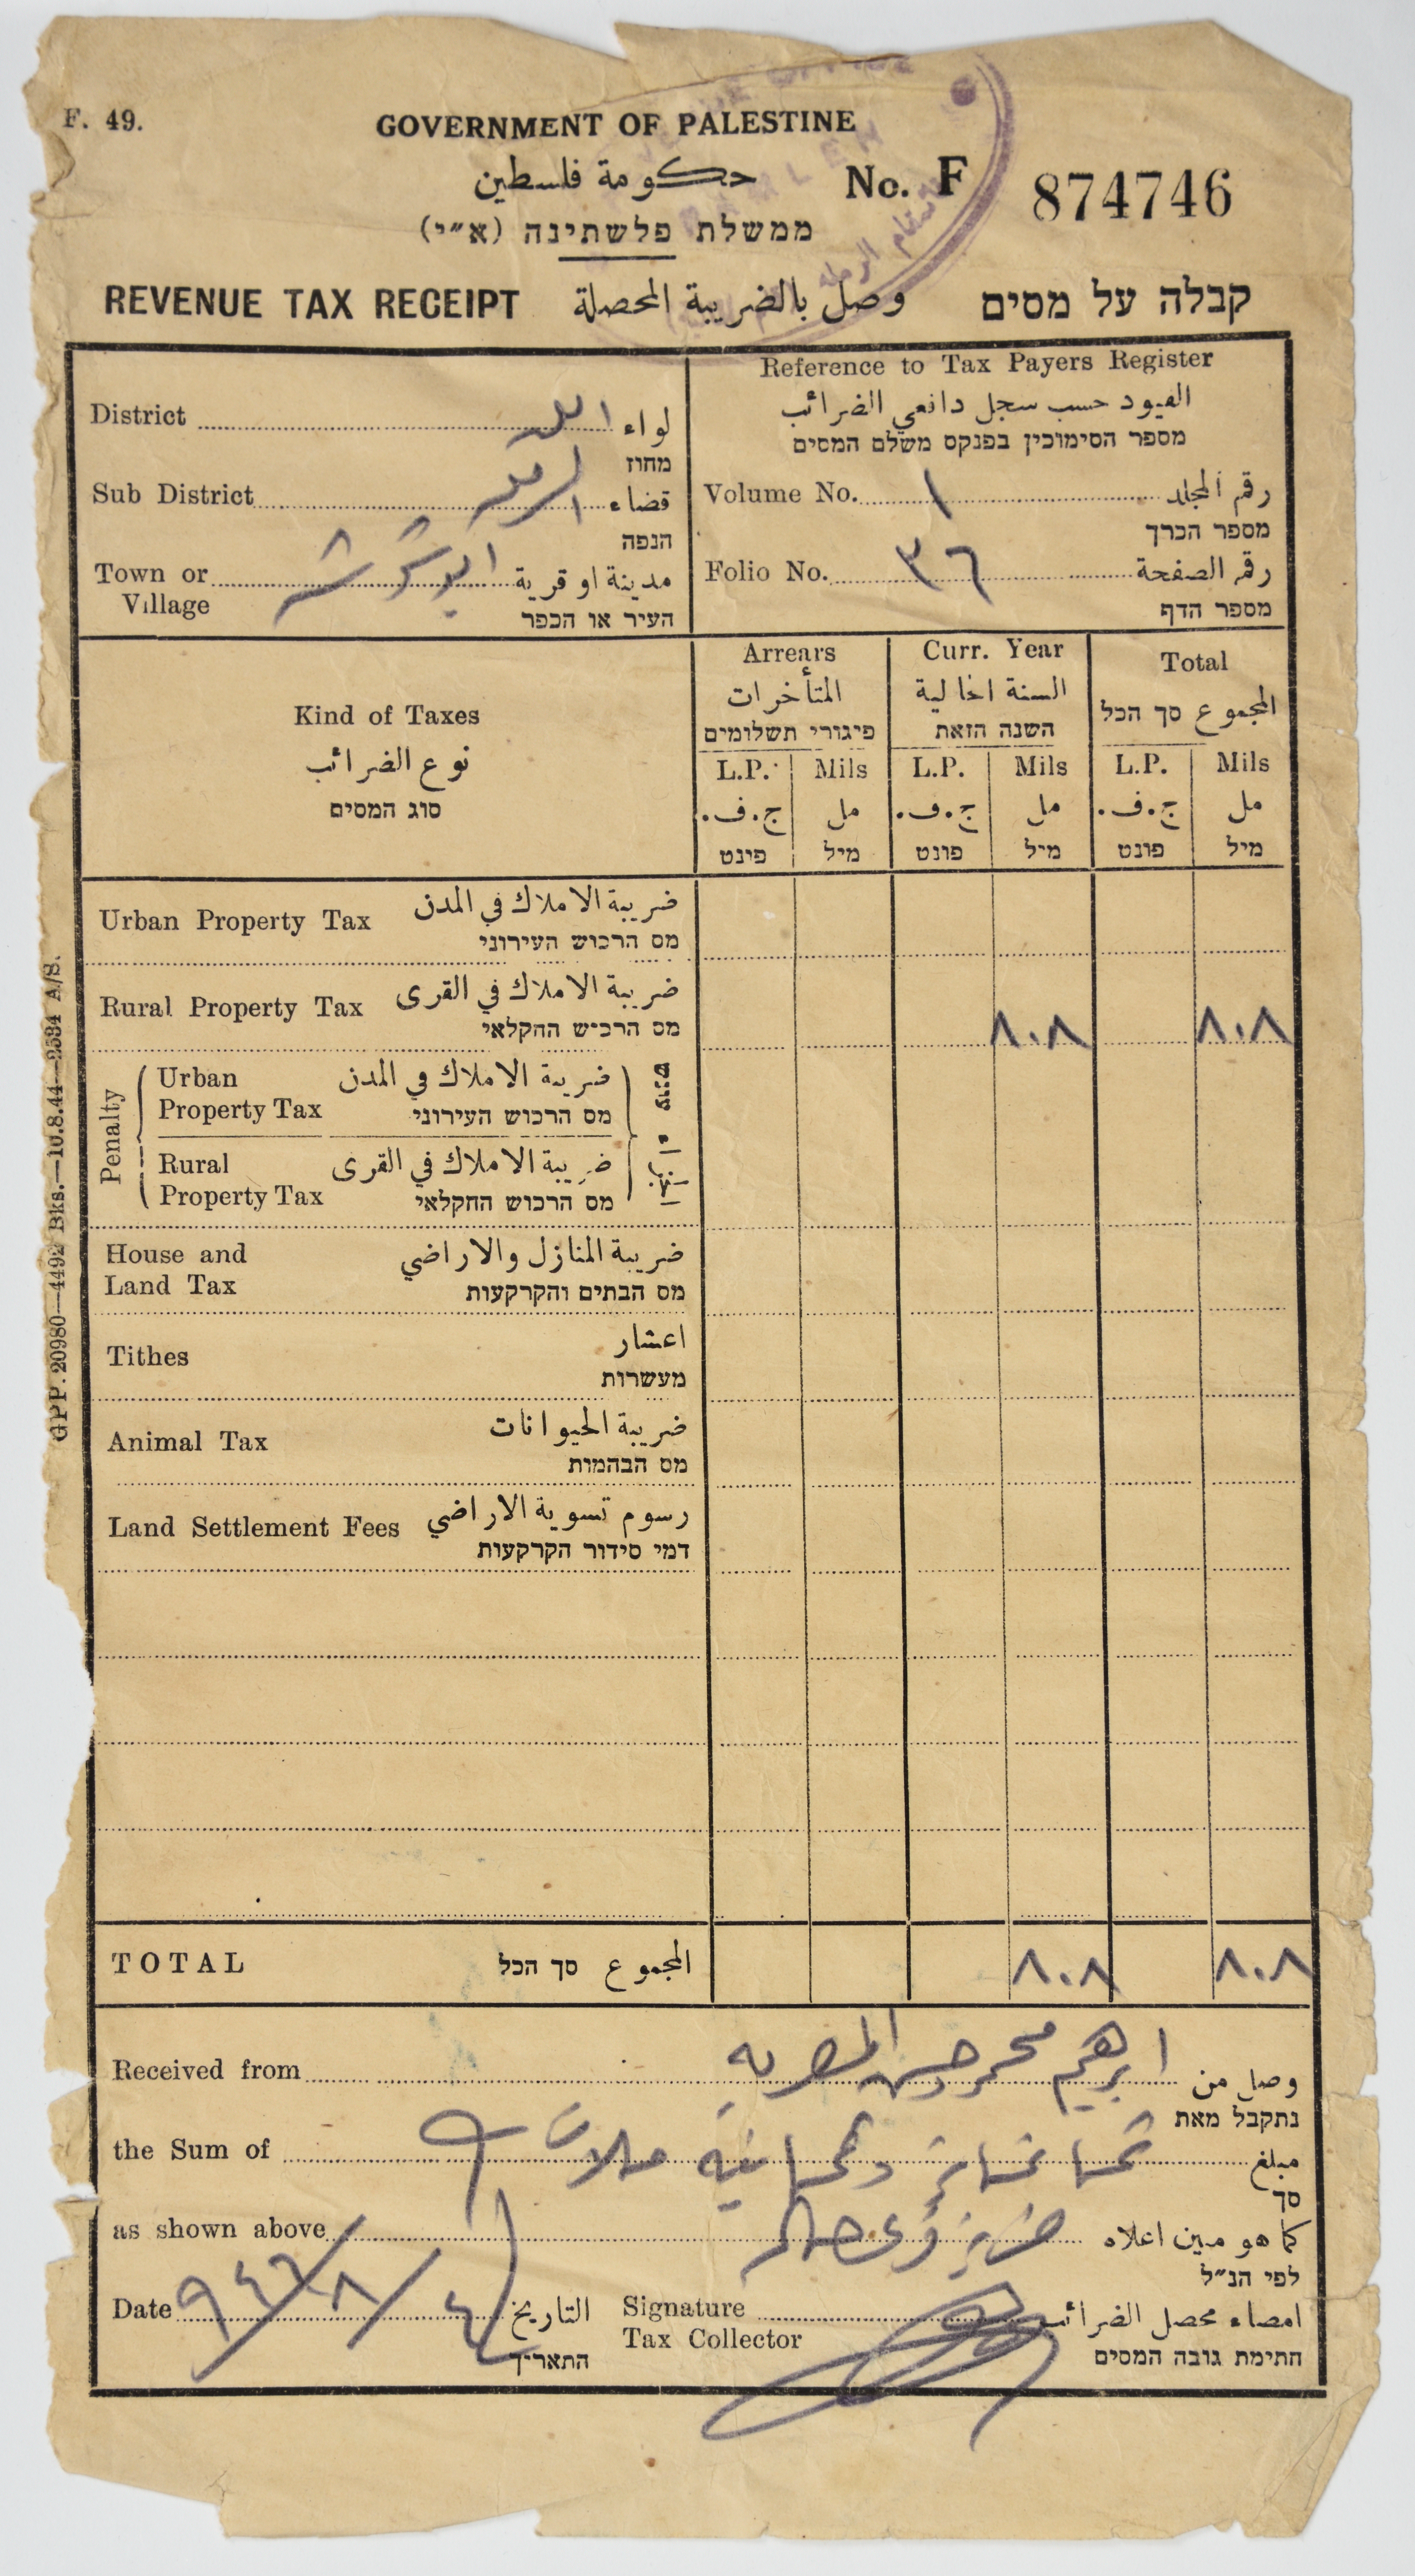 F. 49.
GOVERNMENT OF PALESTINE
حكومة فلسطين
No. F 874746
ממשלת פלשתינה (א״י)
REVENUE TAX RECEIPT وصل بالضريبة المحصلة קבלה על מסים
District لواء اللد
מחוז
Sub District قضاء الرملة
הנפה
Town or Village مدينة او قرية ابو شوشه
העיר או הכפר
Reference to Tax Payers Register
القيود حسب سجل دافعي الضرائب
מספר הסימוכין בפנקס משלם המסים
Volume No. ١ رقم المجلد
מספר הכרך
Folio No. ٣٦ رقم الصفحة
מספר הדף
Kind of Taxes
نوع الضرائب
סוג המסים
Arrears
المتأخرات
פיגורי תשלומים
Curr. Year
السنة الحالية
השנה הזאת
Total
المجموع סך הכל
L.P. Mils L.P. Mils L.P. Mils
ج.ف. مل ج.ف. مل ج.ف. مل
פינט מיל פונט מיל פונט מיל
Urban Property Tax ضريبة الاملاك في المدن
מס הרכוש העירוני
Rural Property Tax ضريبة الاملاك في القرى ٨٠٨ ٨٠٨
מס הרכוש החקלאי
Penalty
Urban Property Tax ضريبة الاملاك في المدن
מס הרכוש העירוני
Rural Property Tax ضريبة الاملاك في القرى
מס הרכוש החקלאי
House and Land Tax ضريبة المنازل والاراضي
מס הבתים והקרקעות
Tithes اعشار
מעשרות
Animal Tax ضريبة الحيوانات
מס הבהמות
Land Settlement Fees رسوم تسوية الاراضي
דמי סידור הקרקעות
TOTAL المجموع סך הכל ٨٠٨ ٨٠٨
Received from وصل من ابرهيم محمد حسن المصريه
נתקבל מאת
the Sum of مبلغ ثمانماية وثمانية ملات
סך
as shown above كما هو مبين اعلاه
לפי הנ״ל
Date ٩٤٦/٨/٤ التاريخ
התאריך
Signature Tax Collector امضاء محصل الضرائب
חתימת גובה המסים
GPP. 20980—4492 Bks.—10.8.44—2534 A/S.